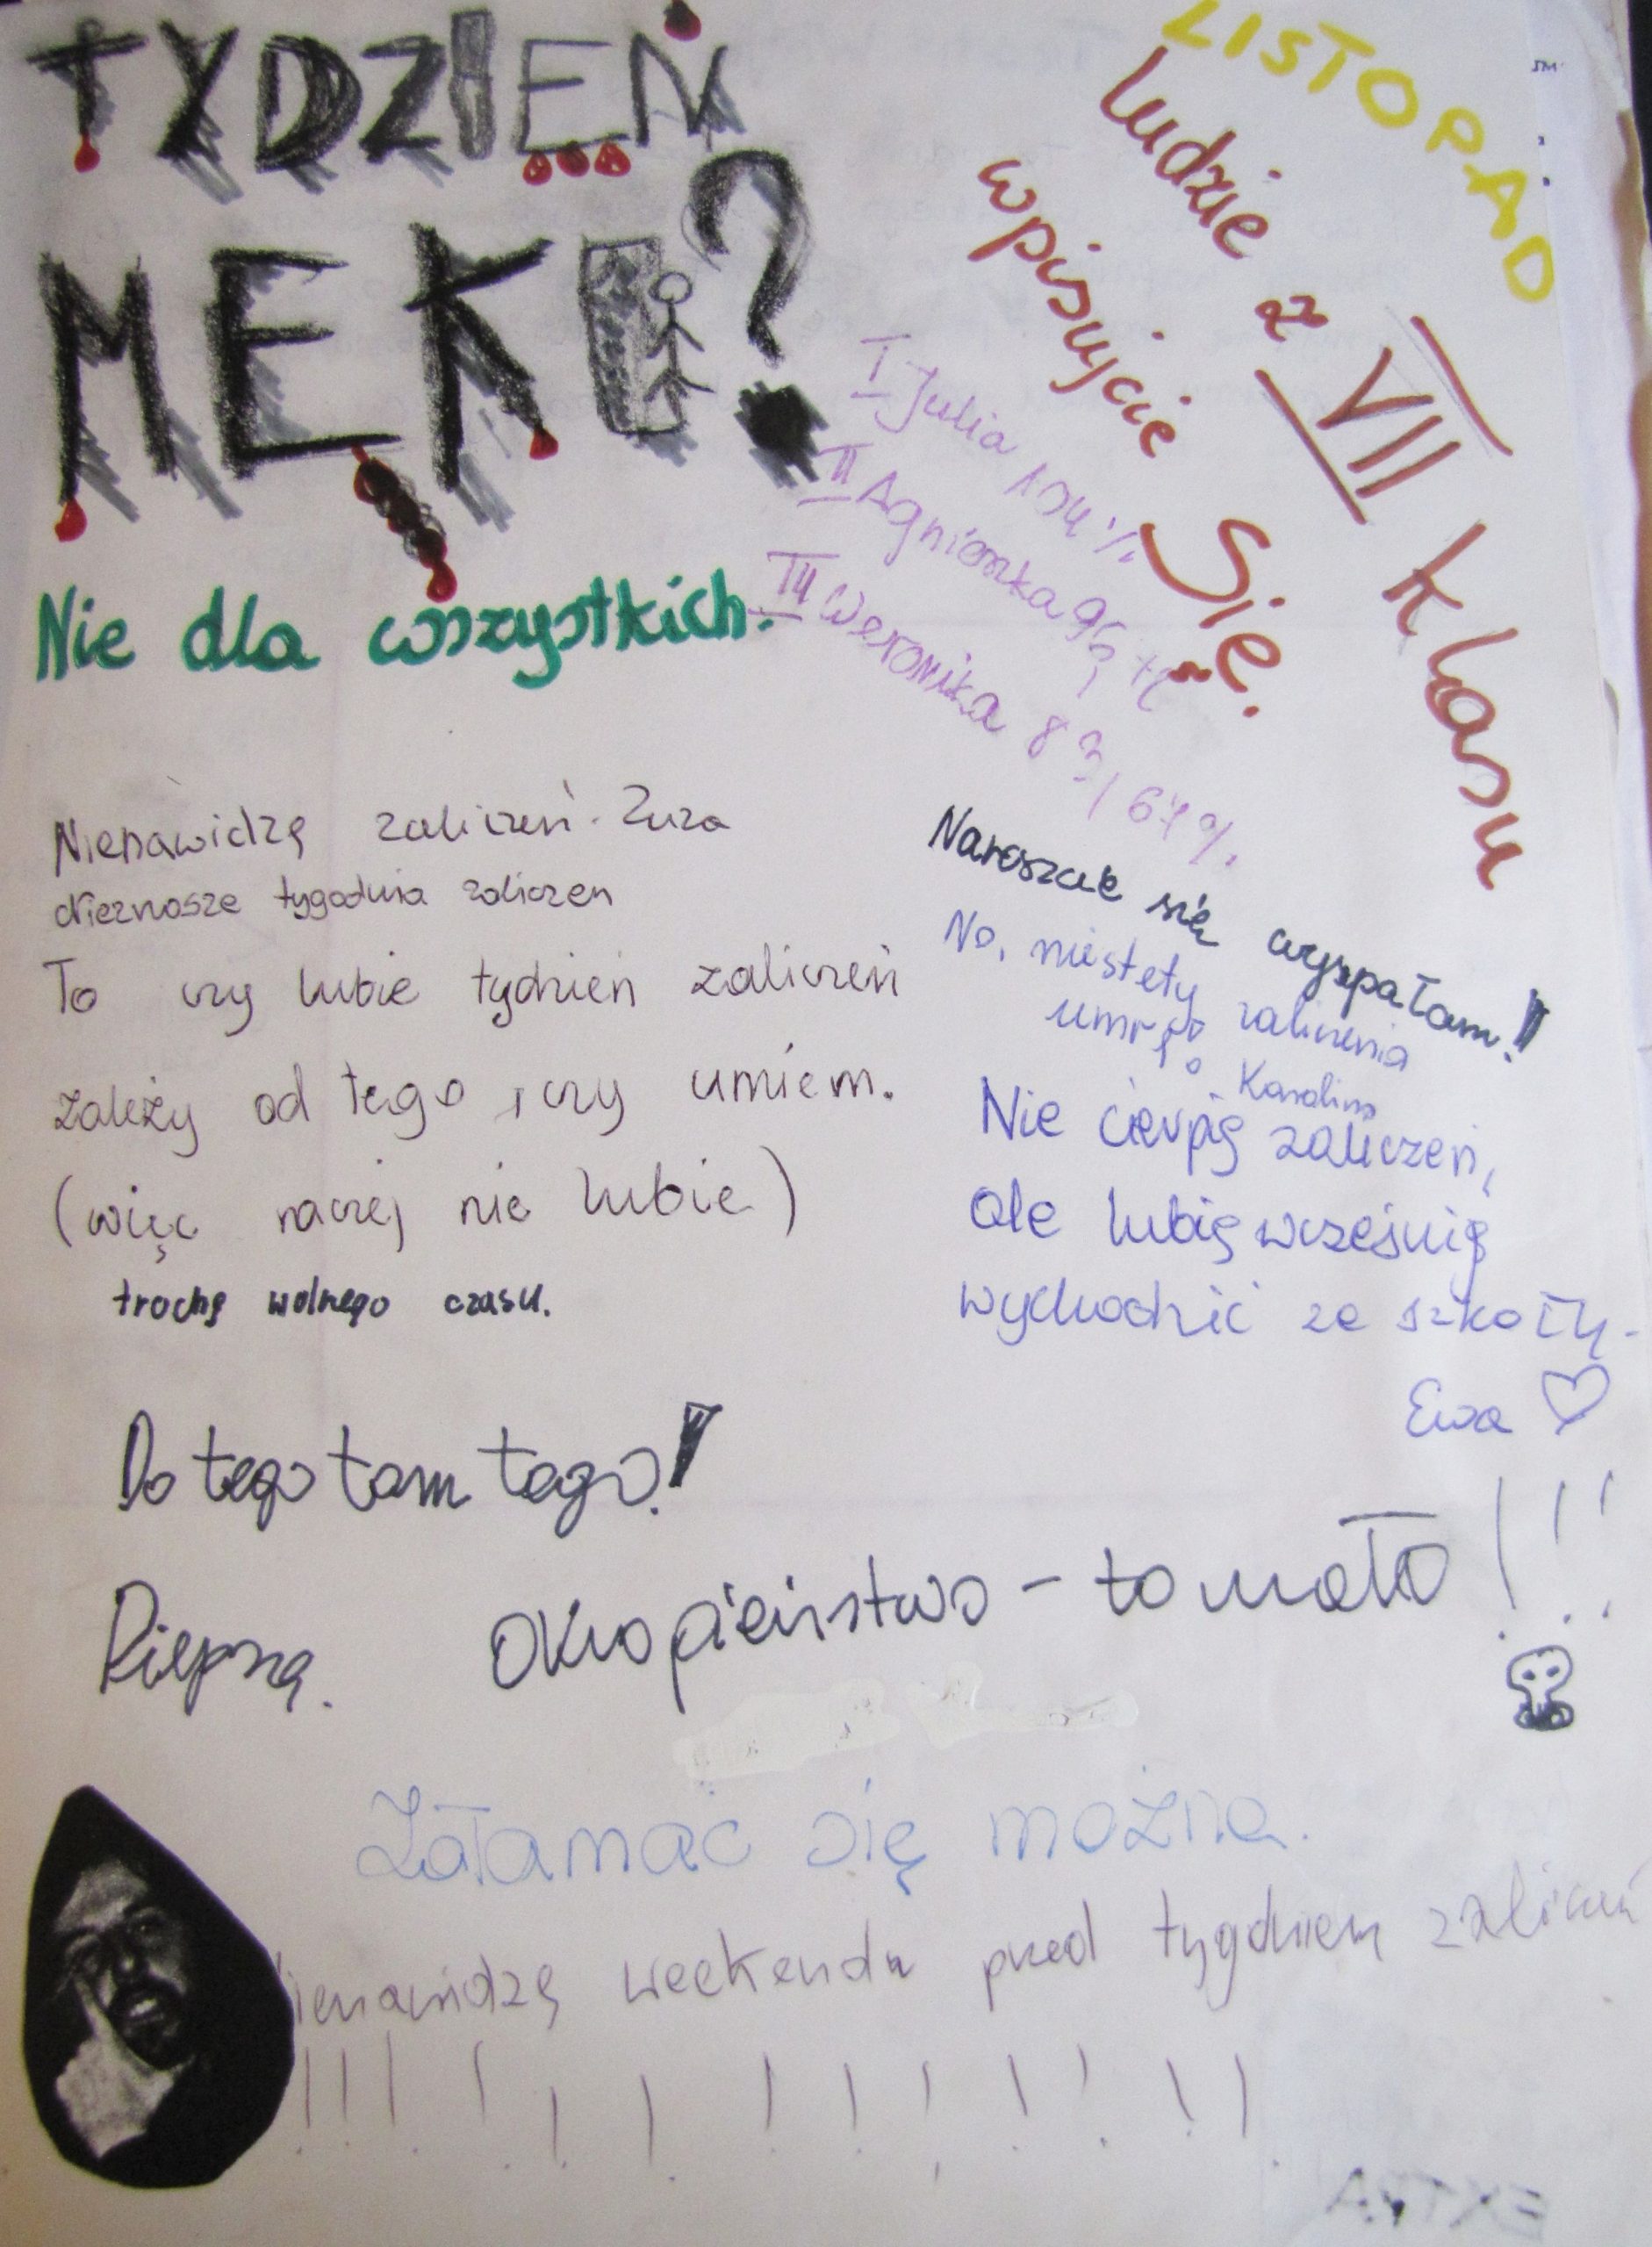 TYDZIEŃ
MEKI?
Nie dla wszystkich.
LISTOPAD
Ludzie z VII klasu
wpisujcie się.
I Julia 104%
II Agnieszka 95,
III Weronika 83,67%.
Nienawidzę zaliczeń. Zuza
nieznosze tygodnia zaliczen
To czy lubie tydzień zaliczeń
zależy od tego, czy umiem.
(więc raczej nie lubie)
trochę wolnego czasu.
Nareszcie się wyspałam!
No, niestety zaliczenia
umrę. Karolina
Nie cierpię zaliczeń,
ale lubię wcześnie
wychodzić ze szkoły.
Ewa ♡
Do tego tam tego!
Okropieństwo - to mało!!!
Załamać się można.
ienawidzę weekendu przed tygodniem zaliczeń
!!!!!!!!!!!!!!
EXTRA